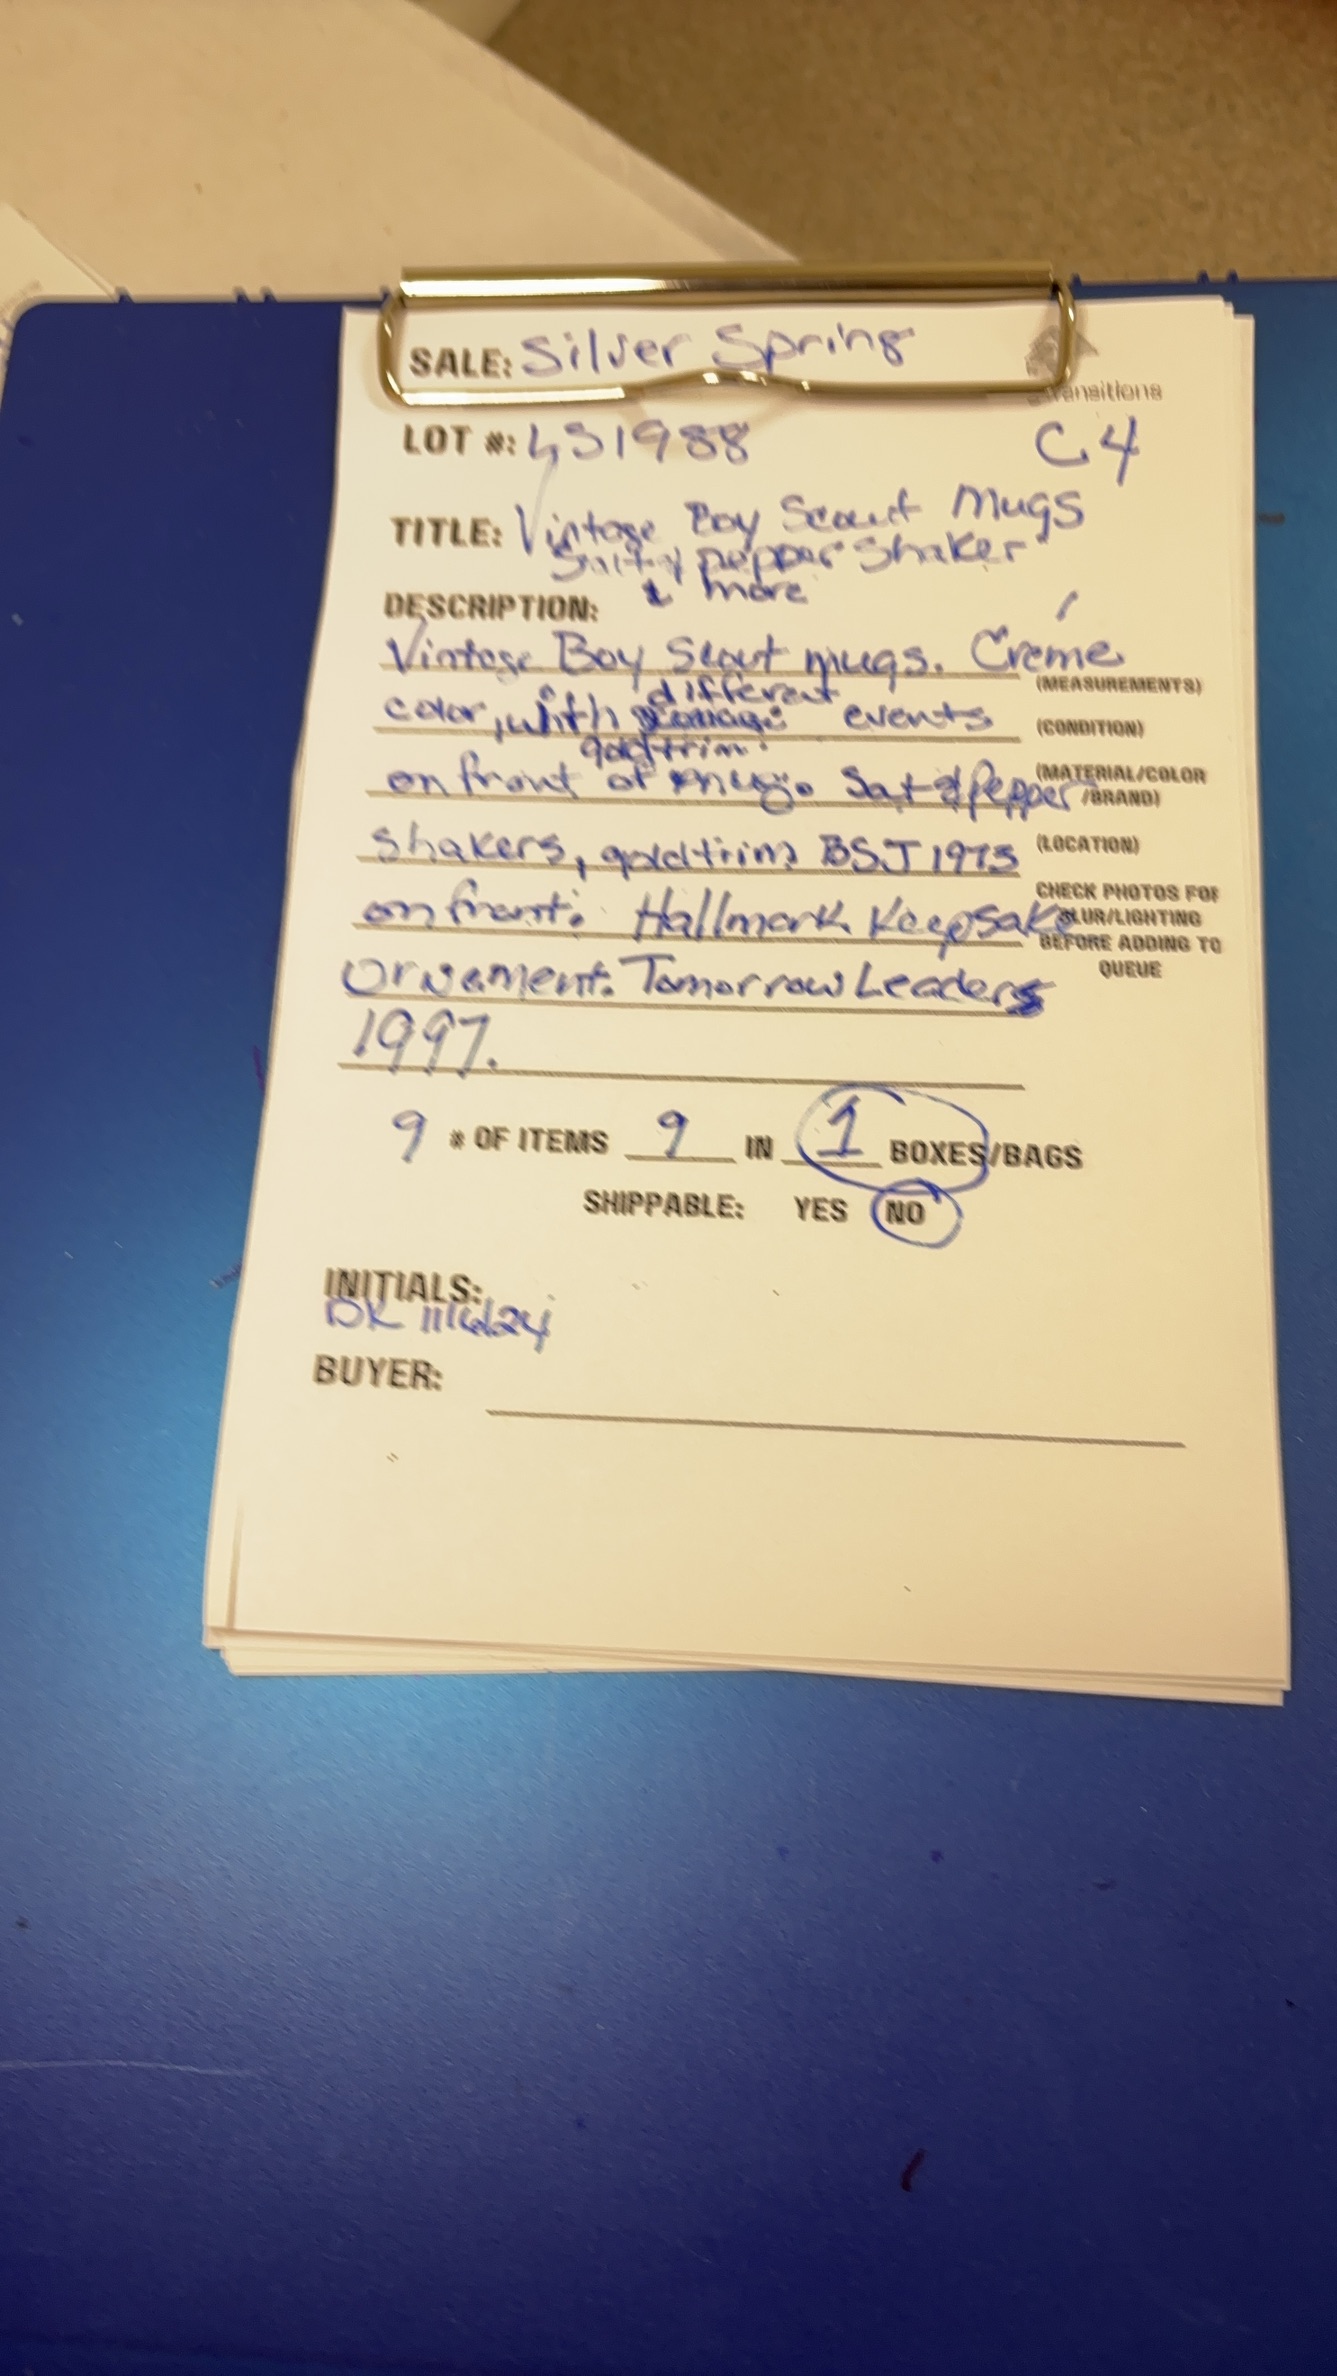 SALE: Silver Spring
ansitions
LOT #: 431988 C4
TITLE: Vintage Boy Scout Mugs
Salt & pepper Shaker
& more
DESCRIPTION:
Vintage Boy Scout mugs. Creme
(MEASUREMENTS)
different
color, with events
(CONDITION)
gold trim.
on front of mug. Sat & Pepper
(MATERIAL/COLOR
/BRAND)
shakers, gold trim BSJ 1973
(LOCATION)
on front. Hallmark Keepsake
CHECK PHOTOS FOR
BLUR/LIGHTING
BEFORE ADDING TO
QUEUE
Ornament. Tomorrow Leaders
1997.
9 # OF ITEMS 9 IN 1 BOXES/BAGS
SHIPPABLE: YES NO
INITIALS:
DK 11/6/24
BUYER: